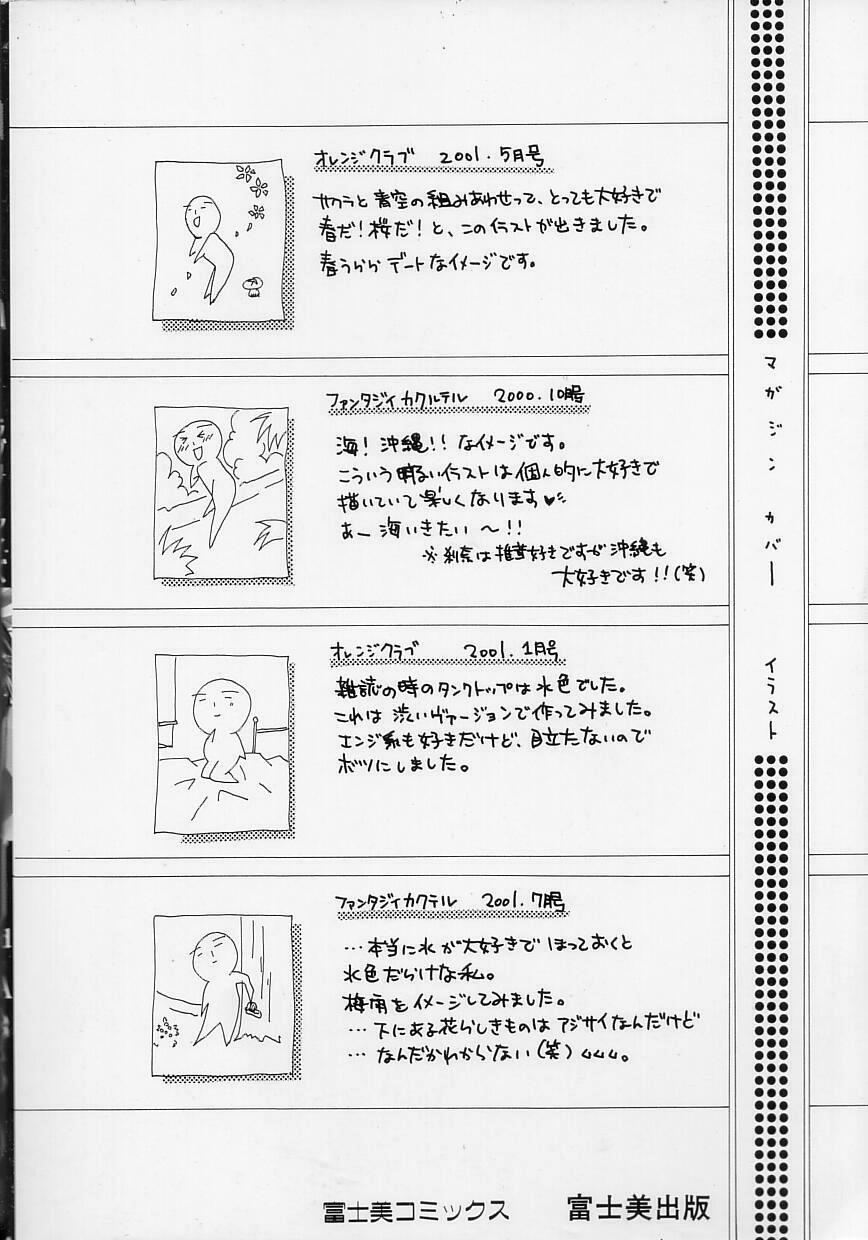 オレンジクラブ 2001.5月号
サクラと青空の組みあわせって、とっても大好きで
春だ!桜だ!と、このイラストが出きました。
春うらら デートなイメージです。
ファンタジィカクルテル 2000.10月号
海!沖縄!!なイメージです。
こういう明るいイラストは個人的に大好きで
描いていて楽しくなります♥
あー 海いきたい〜!!
※ 刹奈は推茸好きですが沖縄も
大好きです!!(笑)
オレンジクラブ 2001.1月号
雑誌の時のタンクトップは水色でした。
これは渋いヴァージョンで作ってみました。
エンジ系も好きだけど、目立たないので
ボツにしました。
ファンタジィカクテル 2001.7月号
…本当に水が大好きで ほっておくと
水色だらけな私。
梅雨をイメージしてみました。
…下にある花らしきものは アジサイなんだけど
…なんだかわからない(笑)
マガジン カバー イラスト
富士美コミックス 富士美出版